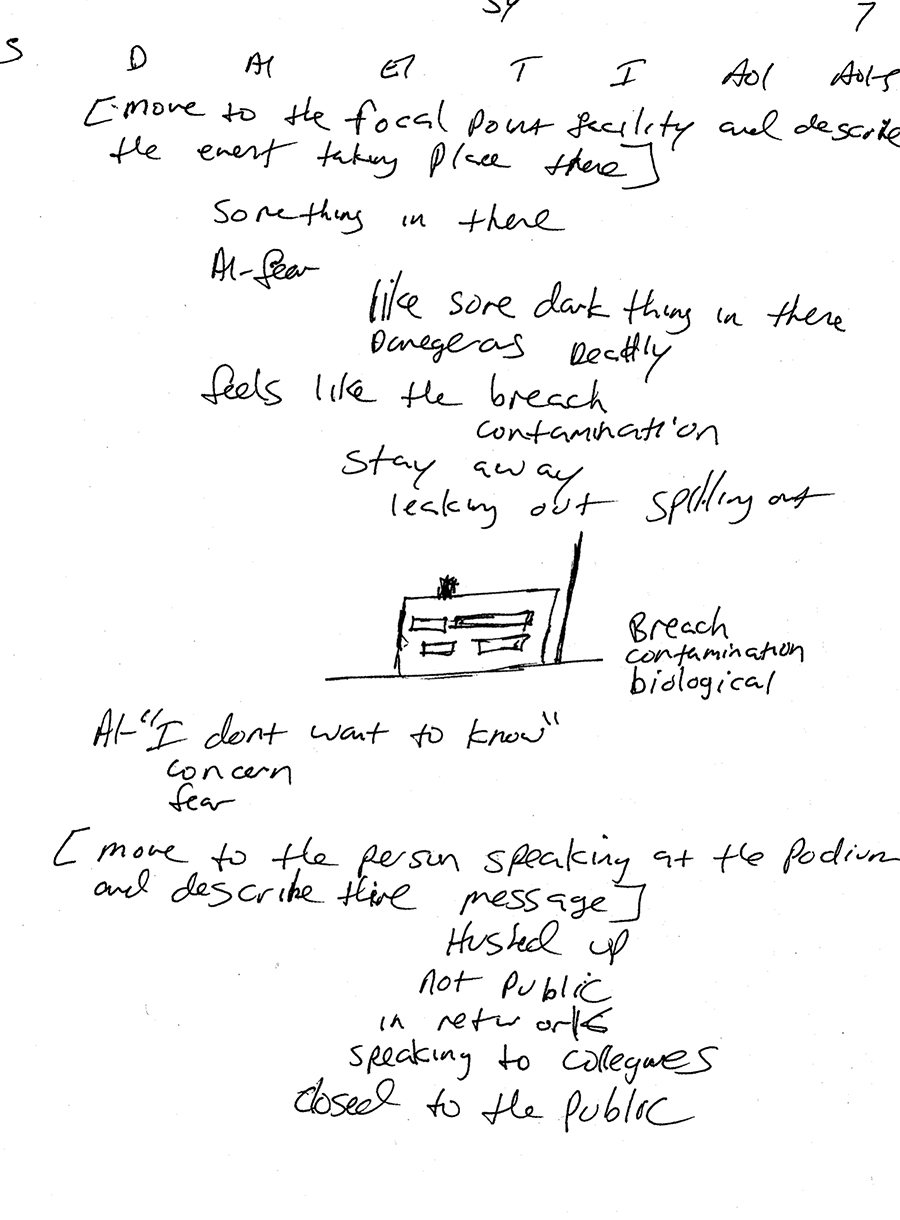 S4 7
S D AI EI T I AOL AOL-S
[move to the focal point facility and describe
the event taking place there]
Something in there
AI-fear
like some dark thing in there
Danegeras Deadly
feels like the breach
contamination
stay away
leaking out spilling out
Breach
contamination
biological
AI-"I dont want to know"
concern
fear
[move to the person speaking at the podium
and describe thire message]
Hushed up
not public
in network
speaking to collegues
closed to the public